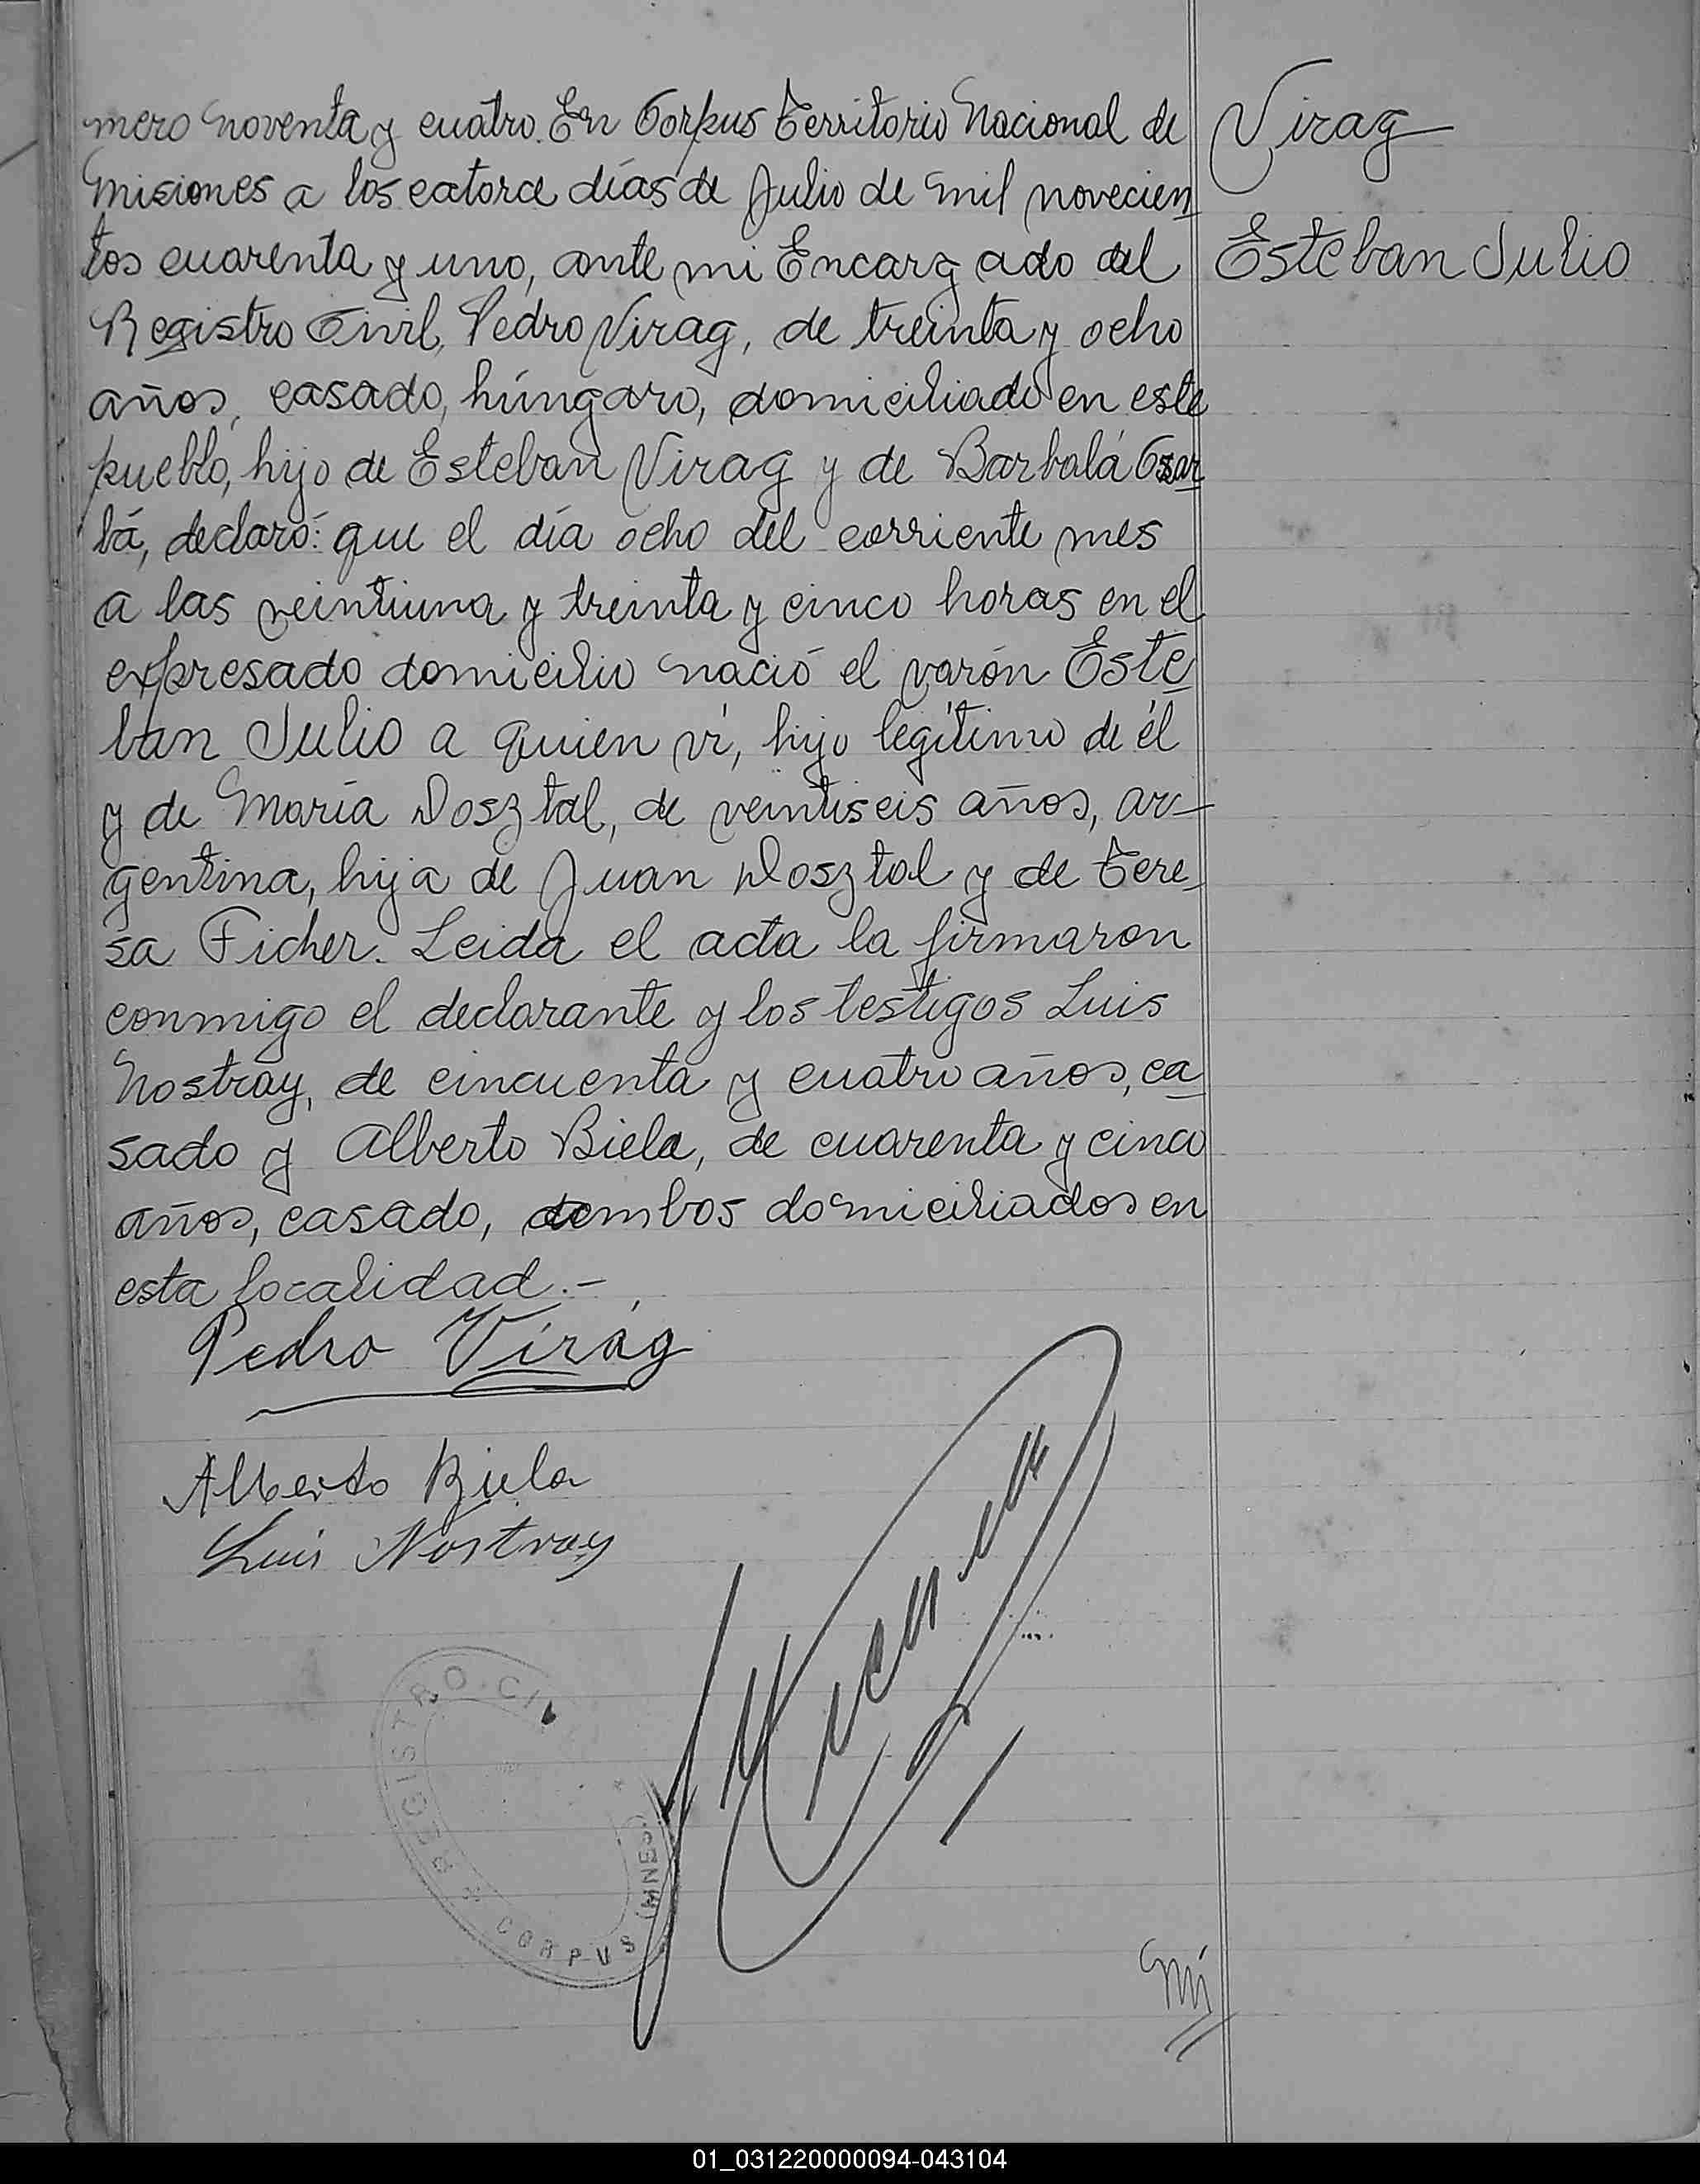 mero noventa y cuatro. En Corpus Territorio Nacional de
Misiones a los catorce días de Julio de mil novecien
tos cuarenta y uno, ante mi Encargado del
Registro Civil, Pedro Virag, de treinta y ocho
años, casado, húngaro, domiciliado en este
pueblo, hijo de Esteban Virag y de Barbalá Csar
bá, declaró: que el día ocho del corriente mes
a las veintiuna y treinta y cinco horas en el
expresado domicilio nació el varón Este
ban Julio a quien ví, hijo legítimo de él
y de María Dosztal, de veintiseis años, ar-
gentina, hija de Juan Dosztal y de Tere
sa Ficher. Leida el acta la firmaron
conmigo el declarante y los testigos Luis
Nostray, de cincuenta y cuatro años, ca
sado y Alberto Biela, de cuarenta y cinco
años, casado, ambos domiciliados en
esta localidad.-
Virag
Esteban Julio
Pedro Virág
Alberto Biela
Luis Nostray
REGISTRO CI
CORPUS (MNES)
mi
01_031220000094-043104